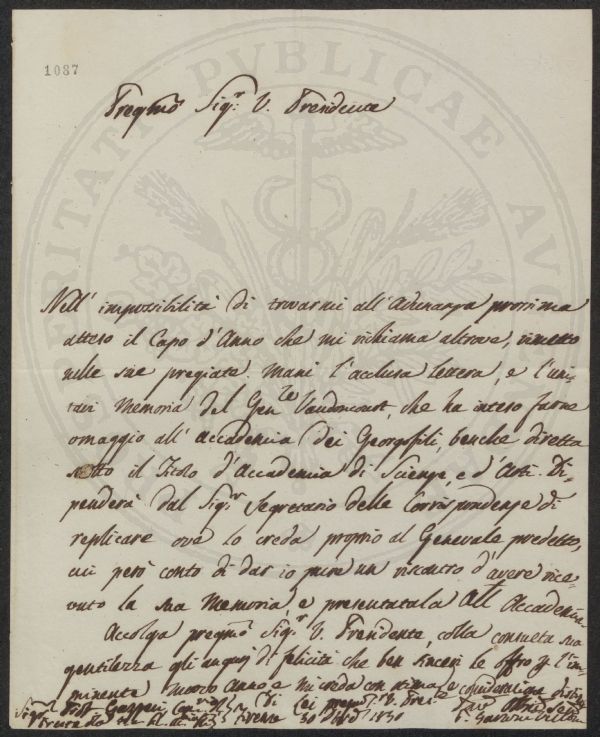 1087
Pregmo Sigr. V. Presidente
Nell' impossibilità di trovarmi all' Adunanza prossima
atteso il Capo d'Anno che mi richiama altrove, rimetto
nelle sue pregiate mani l'acclusa lettera, e l'uni-
tavi Memoria del Genle Vaudoncourt, che ha inteso farne
omaggio all' accademia dei Georgofili, benche diretta
sotto il Titolo d'Accademia di Scienze, e d'Arti. Di-
penderà dal Sigr. Segretario delle Corrispondenze di
replicare ove lo creda proprio al Generale predetto,
cui però conto di dar io pure un riscontro d'avere rice-
vuto la sua Memoria, e presentatala all' Accademia.
Accolga pregmo Sigr. V. Presidente, colla consueta sua
gentilezza gli augurj di felicità che ben sinceri le offro pr l'im-
minente nuovo Anno e mi creda con stima e considerazione
Firenze 30 1830
PUBLICAE